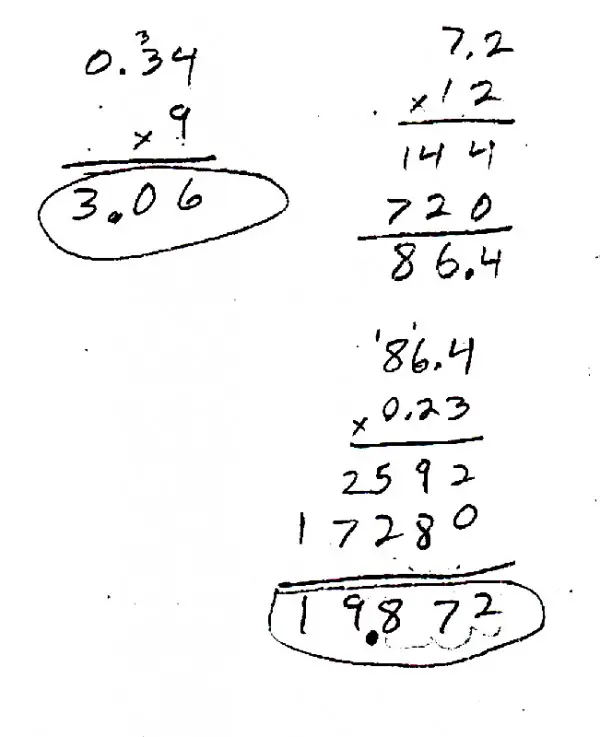 3
0.34
x 9
3.06
7.2
x 12
144
720
86.4
1 1
86.4
x 0.23
2592
17280
19.872